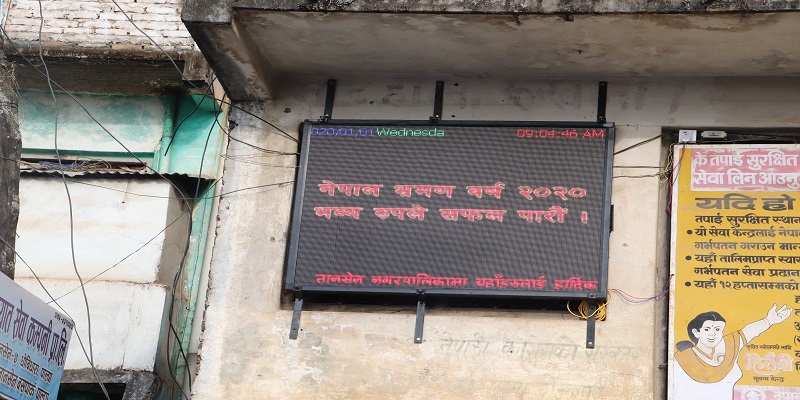 020/01/01 Wednesda 09:04:46 AM
नेपाल भ्रमण वर्ष २०२०
भब्य रुपले सफल पारौं ।
तानसेन नगरपालिकामा यहाँहरुलाई हार्दिक
के तपाई सुरक्षित
सेवा लिन आउनु
यदि हो
तपाई सुरक्षित स्थान
• यो सेवा केन्द्रलाई नेपा
गर्भपतन गराउन मान
• यहाँ तालिमप्राप्त स्वास
गर्भपतन सेवा प्रदान
• यहाँ १२ हप्तासम्मको
सूचना केन्द्र